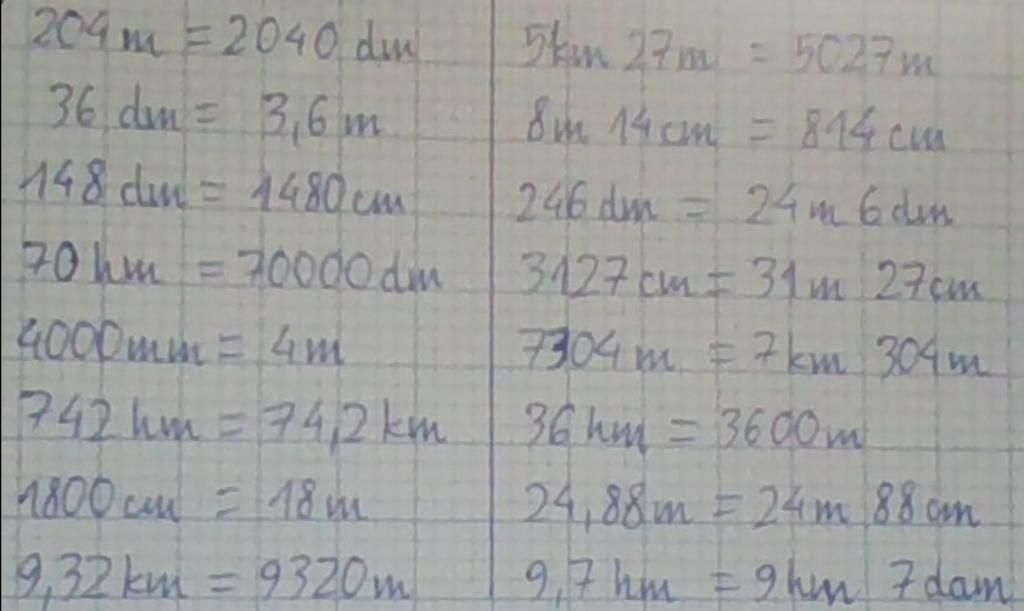 204 m = 2040 dm
36 dm = 3,6 m
148 dm = 1480 cm
70 hm = 70000 dm
4000 mm = 4 m
742 hm = 74,2 km
1800 cm = 18 m
9,32 km = 9320 m
5 km 27 m = 5027 m
8 m 14 cm = 814 cm
246 dm = 24 m 6 dm
3127 cm = 31 m 27 cm
7304 m = 7 km 304 m
36 hm = 3600 m
24,88 m = 24 m 88 cm
9,7 hm = 9 hm 7 dam